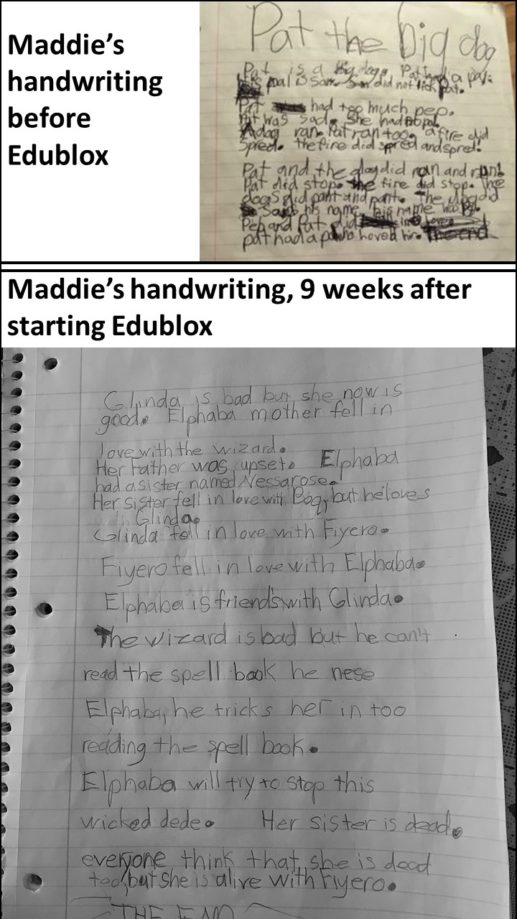 Maddie's
handwriting
before
Edublox
Pat the big dog
Pat is a big dog. Pat had a pal.
pal is Sam. Sam did not lick Pat.
Pat had too much pep.
Pat was sad. She had no pal.
A dog ran. Pat ran too. a fire did
Spred. the fire did spred and spred.
Pat and the dog did ran and ran!
Pat did stop. the fire did stop. The
dogs did pant and pant. The dog did
Said his name. his name was
Pep and Pat did
pat had a pal who loved him. The end
Maddie's handwriting, 9 weeks after
starting Edublox
Glinda is bad but she now is
good. Elphaba mother fell in
love with the wizard.
Her father was upset. Elphaba
had a sister named Nessarose.
Her sister fell in love with Boq, but he loves
Glinda.
Glinda fell in love with Fiyero.
Fiyero fell in love with Elphaba.
Elphaba is friends with Glinda.
The wizard is bad but he can't
read the spell book he nese
Elphaba, he tricks her in too
reading the spell book.
Elphaba will try to stop this
wicked dede. Her sister is dead.
everyone think that she is dead
too, but she is alive with Fiyero.
THE END